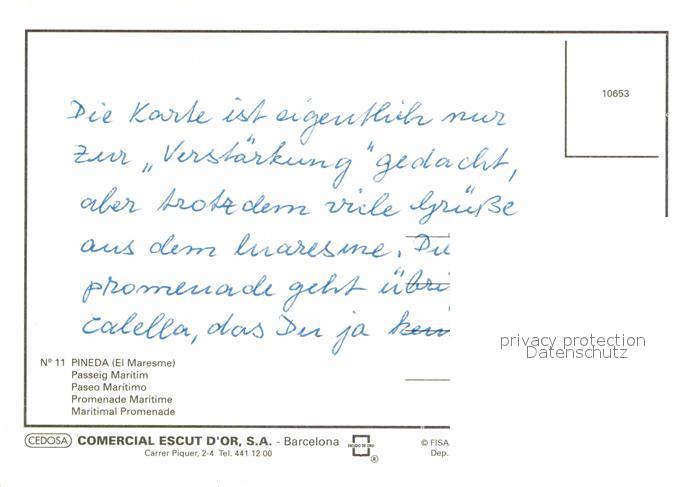 10653
Die Karte ist eigentlich nur
zur „Verstärkung" gedacht,
aber trotzdem viele Grüße
aus dem Maresme. Die
promenade geht übri
Calella, das Du ja
privacy protection
Datenschutz
Nº 11 PINEDA (El Maresme)
Passeig Marítim
Paseo Marítimo
Promenade Maritime
Maritimal Promenade
CEDOSA COMERCIAL ESCUT D'OR, S.A. - Barcelona
Carrer Piquer, 2-4 Tel. 441 12 00
ESCUDO DE ORO
®
© FISA
Dep.